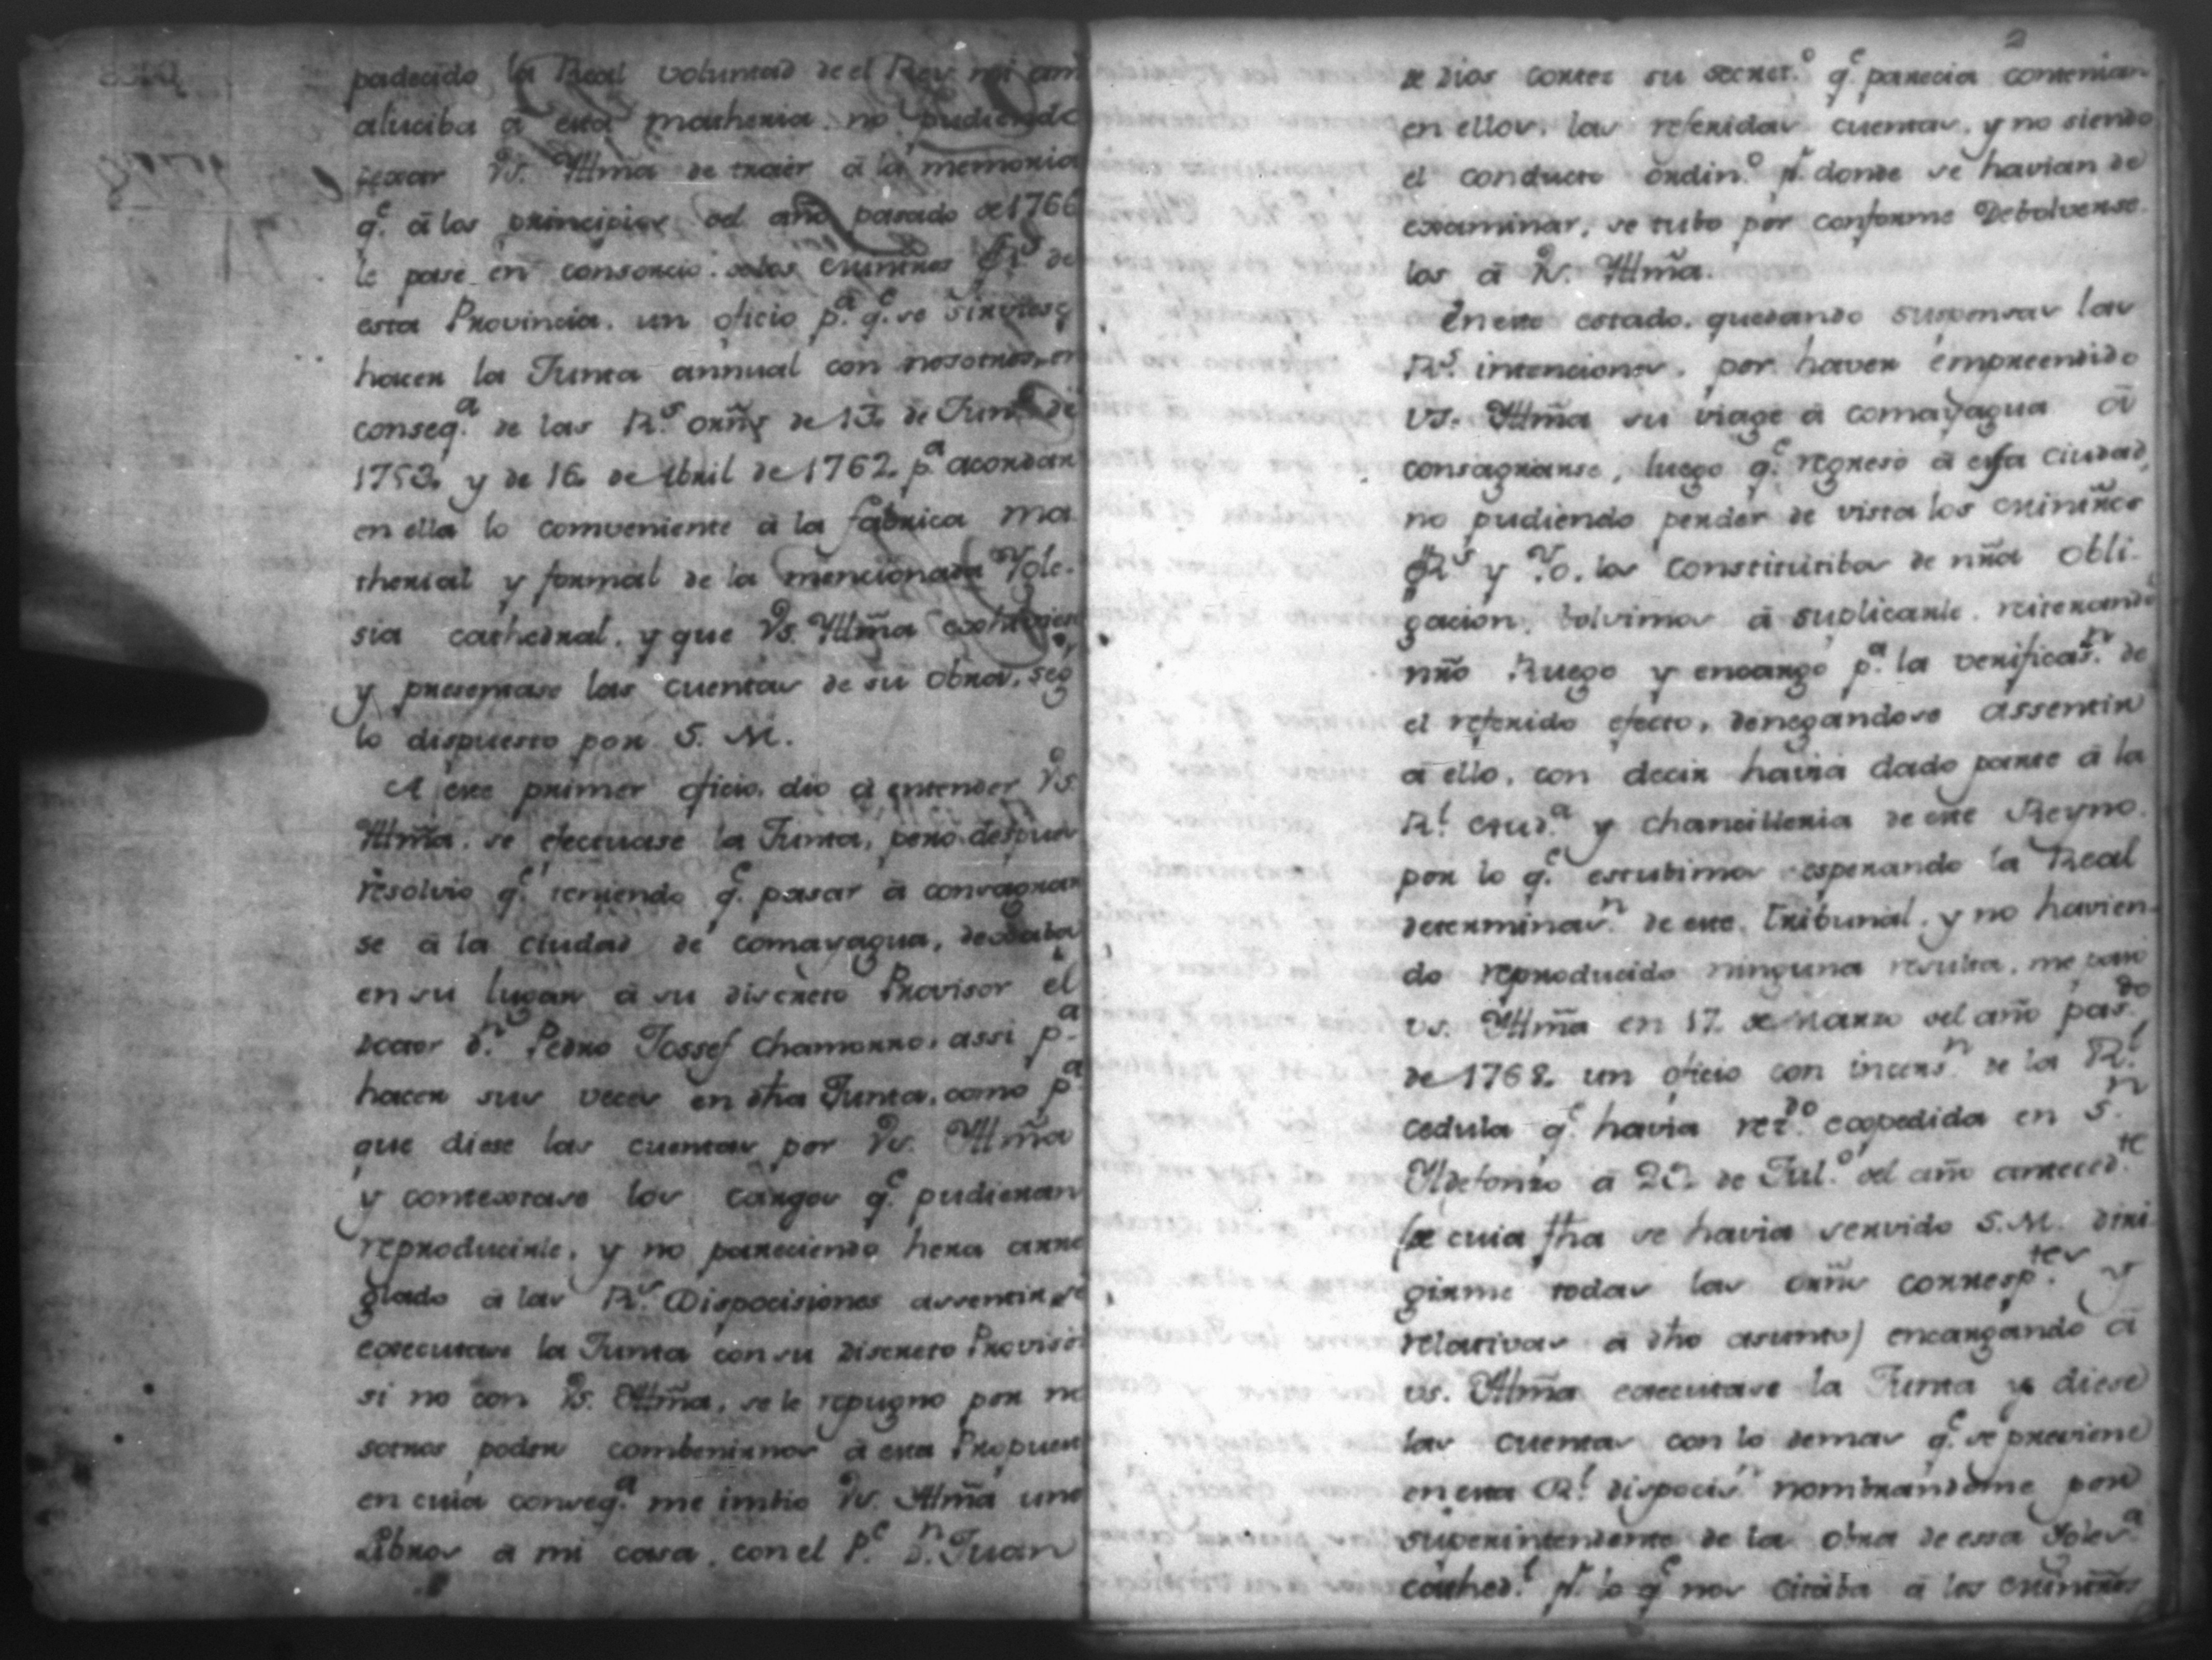 padecido la Real voluntad de el Rey mi am
aluciba â esta matheria. no pudiendo
dexar Vs. Yllmã de traer â la memoria
q.e â los principios del año pasado de 1766
le pase en consorcio de los Ofs. de
esta Provincia, un oficio p.a q.e se sirviese
hacer la Junta annual con nosotros, en
conseq.a de las R.s orñs de 13. de Jun.o de
1753. y de 16. de Abril de 1762. p.a acordar
en ella lo comveniente â la fabrica ma
therial y formal de la mencionada Ygle-
sia cathedral, y que Vs. Yllmã exhiviese
y presentase las cuentas de su obra, seg
lo dispuesto por S. M.
A este primer oficio, dio â entender Vs.
Yllmã. se efectuase la Junta, pero despues
resolvio q.e teniendo q.e pasar â consagrar
se â la ciudad de comayagua, dexaba
en su lugar â su discreto Provisor el
Doctor d.n Pedro Jossef Chamorro, assi p.a
hacer sus veces en dha Junta, como p.a
que diese las cuentas por Vs. Yllmã
y contextase los cargos q.e pudieran
reproducirle, y no pareciendo hera arre
glado â las R.s Dispocisiones assentir se
executase la Junta con su discreto Provisor
si no con Vs. Yllmã, se le repugno por no
sotros poder combenirnos â esta Propuest
en cuia conseq.a me imbio Vs. Yllmã uno
Libros â mi casa, con el P.e D.n Juan
2
de Dios cortez su secret.o q.e parecia contenian
en ellos, las referidas cuentas, y no siendo
el conducto ordin.o p.r donde se havian de
examinar, se tubo por conforme Debolverse
los â V. Yllmã.
En este estado, quedando suspensas las
R.s intenciones, por haver empreendido
Vs. Yllmã su viage â comayagua â
consagrarse, luego q.e regresó â essa ciudad,
no pudiendo perder de vista los
y Yo, las constitutibas de nrã obli-
gacion, bolvimos â suplicarle, reiterando
nrõ Ruego y encargo p.a la verificas.n de
el referido efecto, denegandose assentir
â ello, con decir havia dado parte â la
R.l Aud.a y chancilleria de este Reyno.
por lo q.e estubimos esperando la Real
determinas.n de este tribunal, y no havien-
do reproducido ninguna resulta, me paso
vs. Yllmã en 17. de Marzo del año pas.do
de 1768. un oficio con incers.n de la R.l
cedula q.e havia rez.do expedida en S.n
Yldefonzo â 23. de Jul.o del año anteced.te
(de cuia fha se havia servido S.M. diri
girme todas las orñs corresp.tes y
relativas â dho asunto) encargando â
vs. Yllmã executase la Junta y diese
las cuentas con lo demas q.e se previene
en esta R.l dispocis.n nombrandome por
superintendente de la obra de essa Ygles.a
cathed.l p.r lo q.e nos citaba â los